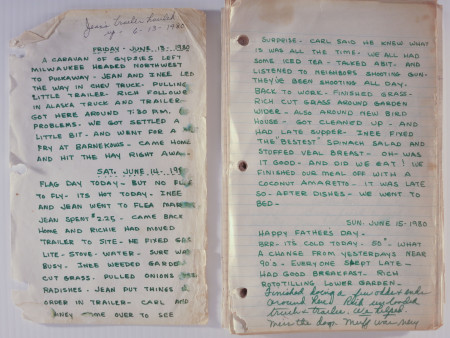 Jean's Trailer Launch
6-13-1980
FRIDAY - JUNE, 13 - 1980
A CARAVAN OF GYPSIES LEFT
MILWAUKEE HEADED NORTHWEST
TO PUCKAWAY - JEAN AND INEE LED
THE WAY IN CHEV TRUCK - PULLING
LITTLE TRAILER - RICH FOLLOWED
IN ALASKA TRUCK AND TRAILER -
GOT HERE AROUND 7:30 P.M.
PROBLEMS. WE GOT SETTLED A
LITTLE BIT - AND WENT FOR A
FRY AT BARNEKOWS - CAME HOME
AND HIT THE HAY RIGHT AWA
SAT. JUNE 14 - 198
FLAG DAY TODAY - BUT NO FL
TO FLY - ITS HOT TODAY - INEE
AND JEAN WENT TO FLEA MAR
JEAN SPENT $2.25 - CAME BACK
HOME AND RICHIE HAD MOVED
TRAILER TO SITE - HE FIXED GAS
LITE - STOVE - WATER - SURE WAS
BUSY. INEE WEEDED GARDE
CUT GRASS. PULLED ONIONS
RADISHES - JEAN PUT THINGS
ORDER IN TRAILER - CARL AND
COME OVER TO SEE
SURPRISE - CARL SAID HE KNEW WHAT
IS WAS ALL THE TIME - WE ALL HAD
SOME ICED TEA - TALKED ABIT - AND
LISTENED TO NEIGHBORS SHOOTING GUN -
THEY'VE BEEN SHOOTING ALL DAY.
BACK TO WORK - FINISHED GRASS -
RICH CUT GRASS AROUND GARDEN
WIDER - ALSO AROUND NEW BIRD
HOUSE - GOT CLEANED UP - AND
HAD LATE SUPPER - INEE FIXED
THE "BESTEST" SPINACH SALAD AND
STUFFED VEAL BREAST - OH - WAS
IT GOOD - AND DID WE EAT! WE
FINISHED OUR MEAL OFF WITH A
COCONUT AMARETTO - IT WAS LATE
SO - AFTER DISHES - WE WENT TO
BED -
SUN - JUNE - 15 - 1980
HAPPY FATHERS DAY -
BRR - ITS COLD TODAY - 50° - WHAT
A CHANGE FROM YESTERDAYS NEAR
90'S - EVERYONE SLEPT LATE -
HAD GOOD BREAKFAST - RICH
ROTOTILLING LOWER GARDEN -
Finished doing a few odds & ends
around here. Rich
truck & trailer. We helped
Mess the dogs. Muff was very